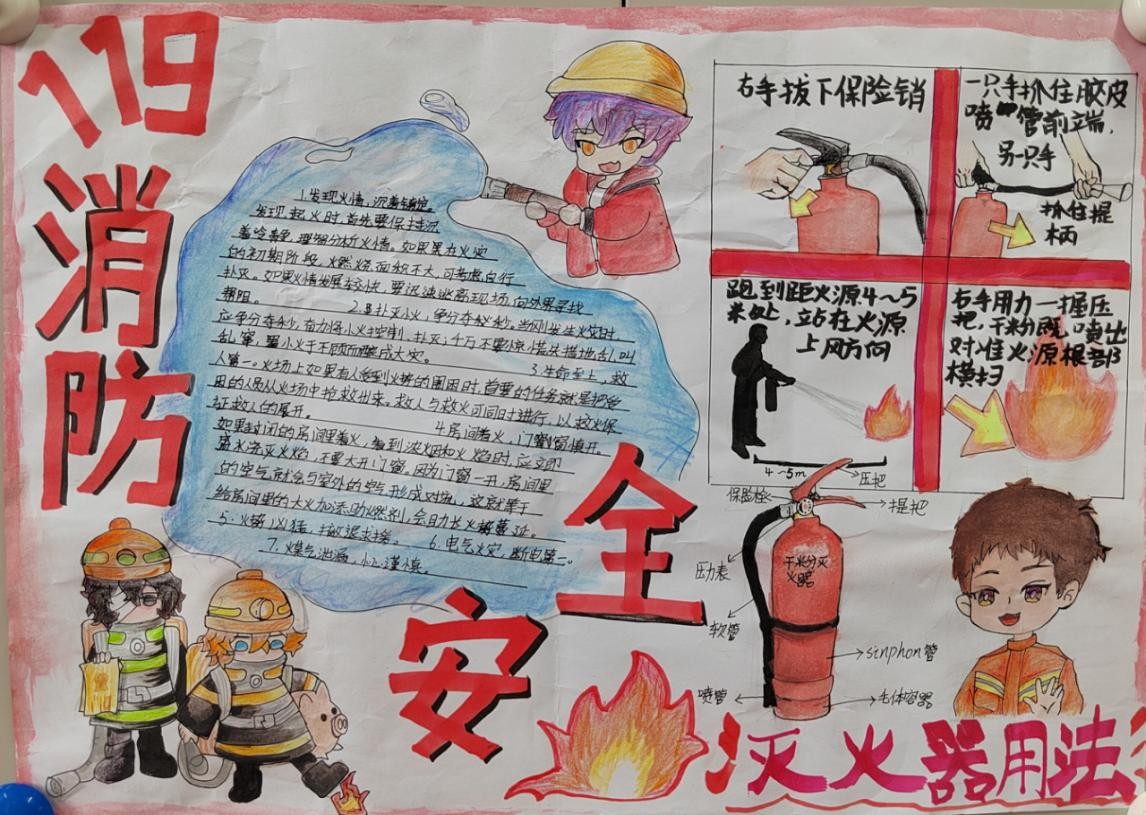 119
消防
安全
1.发现火情,沉着镇定。
发现起火时,首先要保持沉
着冷静,理智分析火情。如果是在火灾
的初期阶段,燃烧面积不大,可考虑自行
扑灭。如果火情发展较快,要迅速逃离现场,向外界寻找
帮助。 2.扑灭小火,争分夺秒。当刚发生火灾时,
应争分夺秒,奋力将小火控制、扑灭;千万不要惊慌失措地乱叫
乱窜,置小火于不顾而酿成大灾。 3.生命至上,救
人第一。火场上如果有人受到火势的围困时,首要的任务就是把受
困的人员从火场中抢救出来。救人与救火可同时进行,以救火保
证救人的展开。 4.房间着火,门窗慎开。
如果封闭的房间里着火,看到浓烟和火焰时,应立即
盛水浇灭火焰,不要大开门窗。因为门窗一开,房间里
的空气就会与室外的空气形成对流,这就等于
给房间里的大火加添助燃剂,会助长火势蔓延。
5.火势凶猛,撤退求援。 6.电气火灾,断电第一。
7.煤气泄漏,小心谨慎。
右手拔下保险销
一只手抓住胶皮
喷管前端,
另一只手
抓住提
柄
跑到距火源4~5
米处,站在火源
上风方向
4~5m
右手用力一握压
把,干粉既喷出
对准火源根部
横扫
保险栓
压把
提把
干粉灭
火器
压力表
软管
sinphon管
喷管
毛体容器
灭火器用法